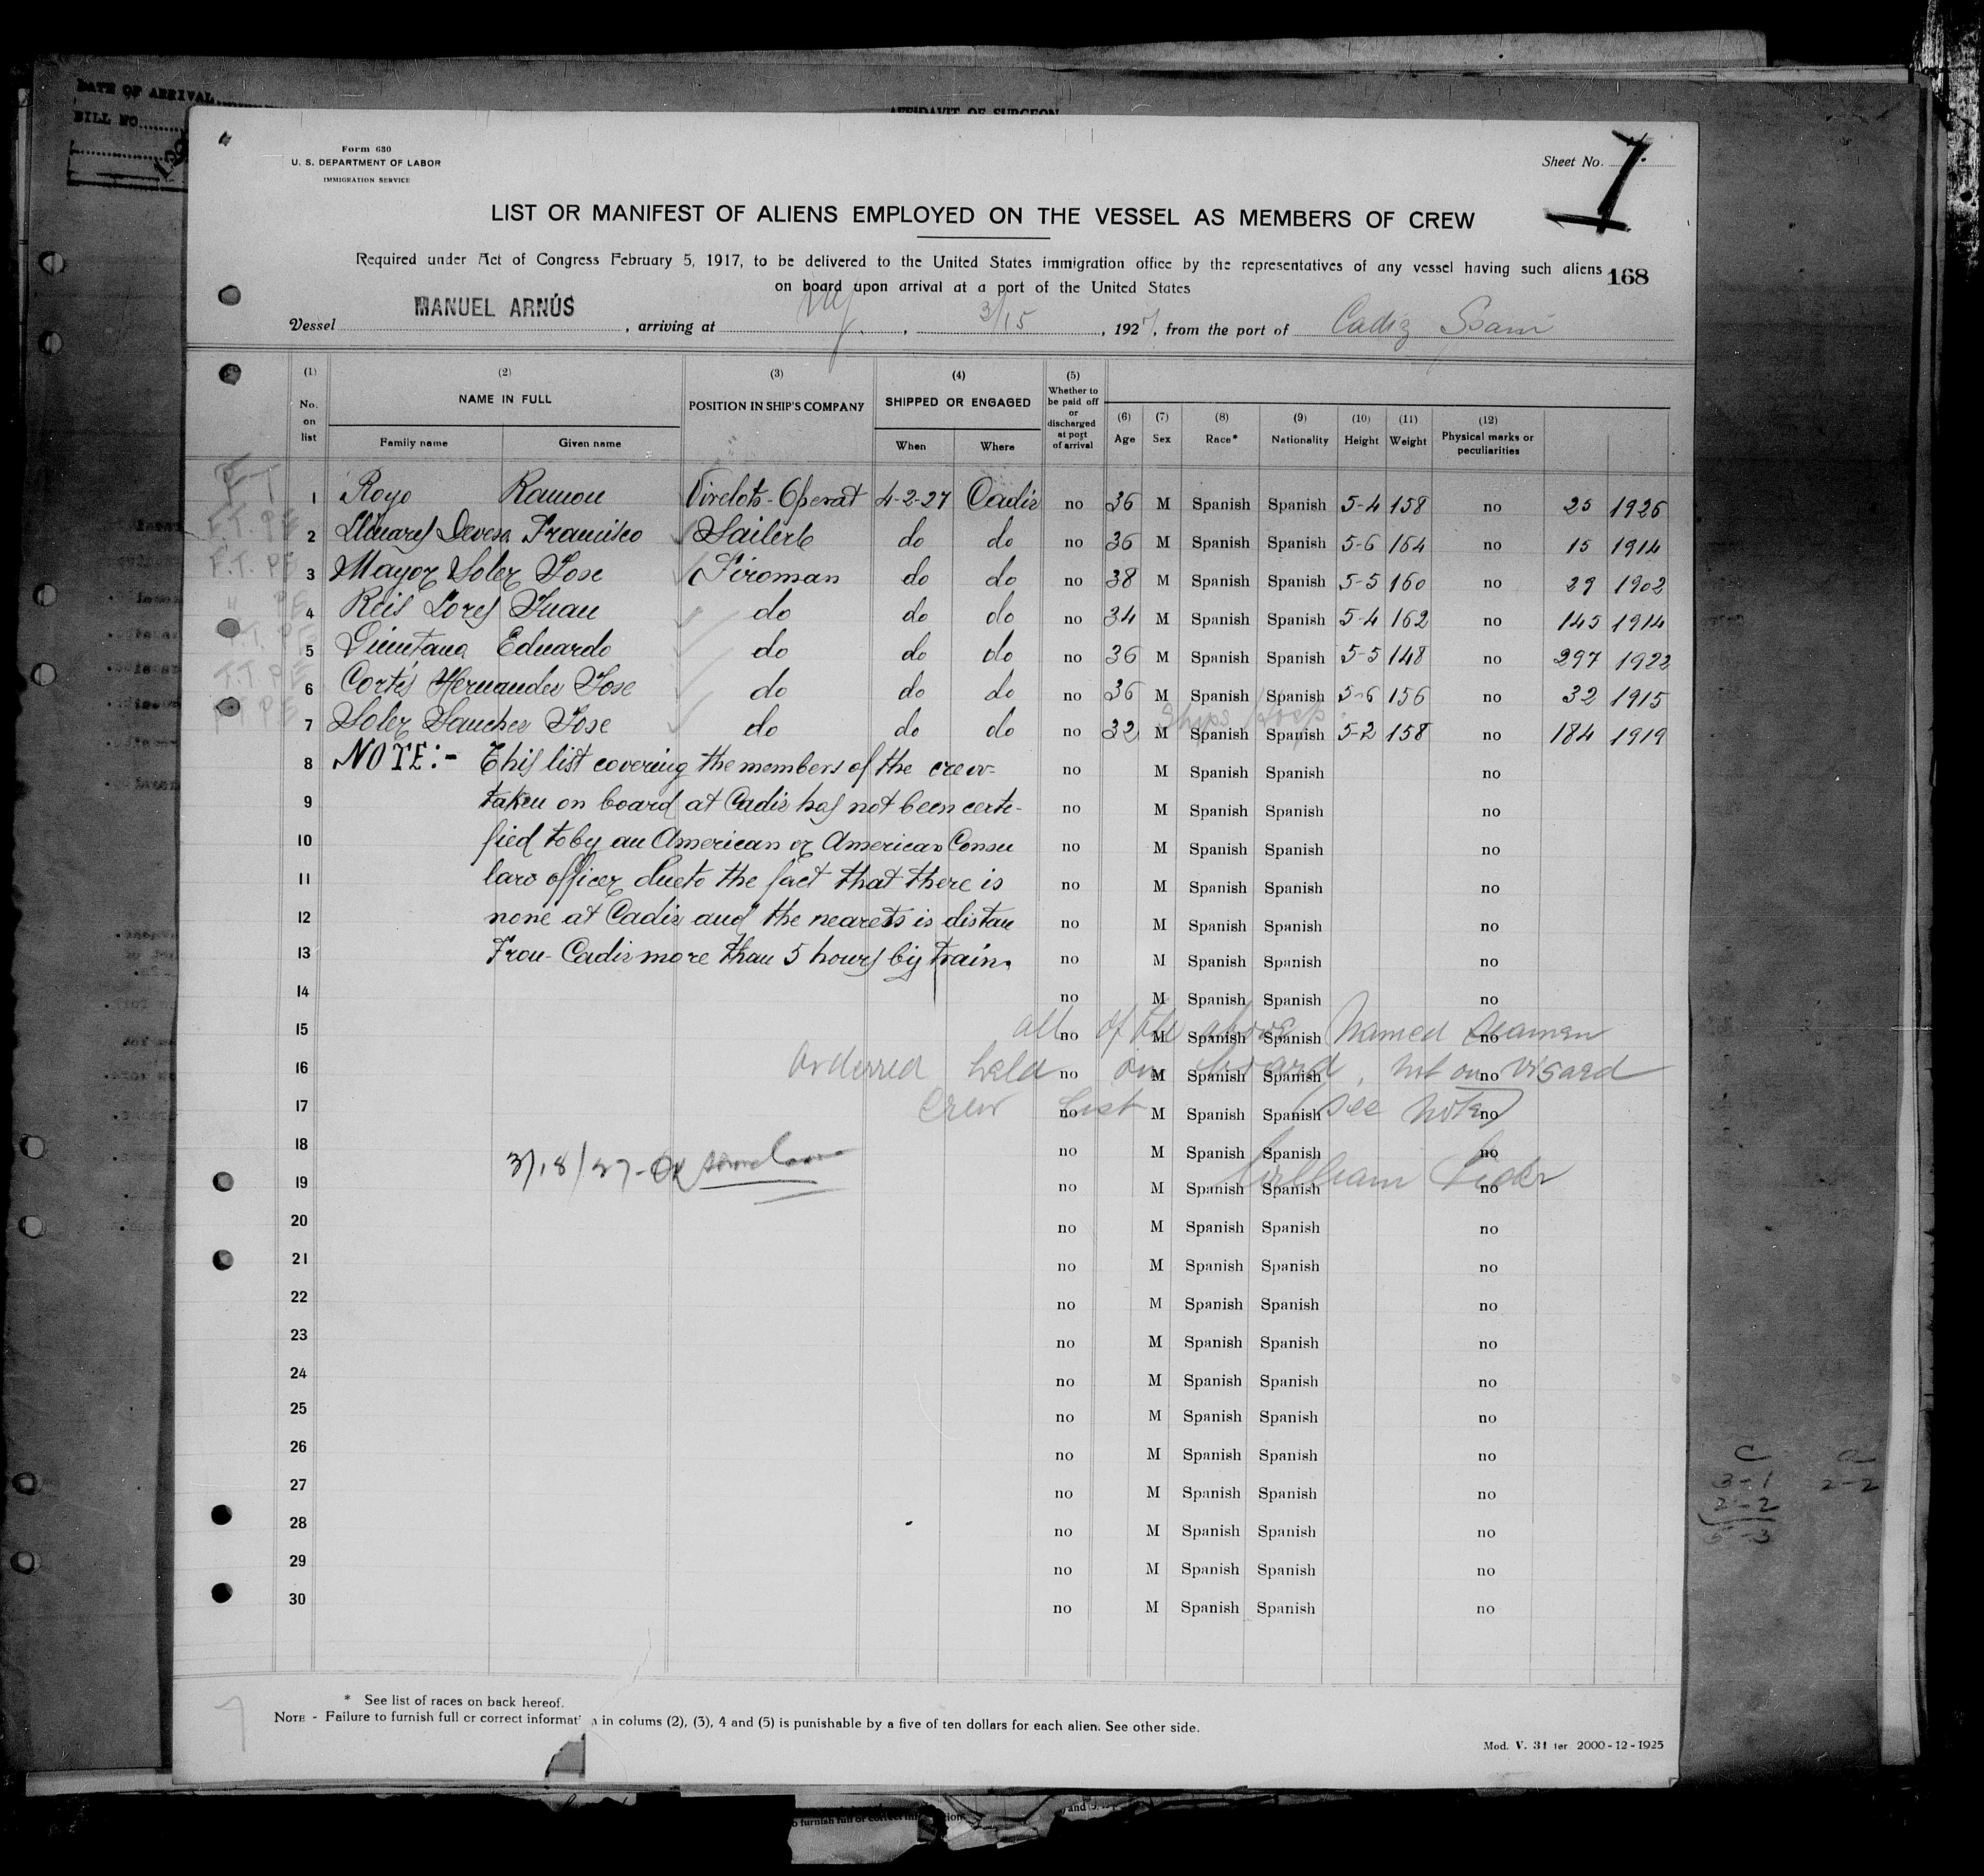 DATE OF ARRIVAL
BILL NO
AFFIDAVIT OF SURGEON
Form 630
U. S. DEPARTMENT OF LABOR
IMMIGRATION SERVICE
Sheet No. 7
LIST OR MANIFEST OF ALIENS EMPLOYED ON THE VESSEL AS MEMBERS OF CREW
Required under Act of Congress February 5, 1917, to be delivered to the United States immigration office by the representatives of any vessel having such aliens
on board upon arrival at a port of the United States
168
Vessel MANUEL ARNÚS, arriving at NY, 3/15, 1927, from the port of Cadiz Spain
(1) No. on list (2) NAME IN FULL Family name Given name (3) POSITION IN SHIP'S COMPANY (4) SHIPPED OR ENGAGED When Where (5) Whether to be paid off or discharged at port of arrival (6) Age (7) Sex (8) Race* (9) Nationality (10) Height (11) Weight (12) Physical marks or peculiarities
1 Royo Ramon Virelots-Operat 4-2-27 Cadiz no 36 M Spanish Spanish 5-4 158 no 25 1926
2 Llinares Devesa Francisco Sailerb do do no 36 M Spanish Spanish 5-6 164 no 15 1914
3 Mayor Soler Jose Firoman do do no 38 M Spanish Spanish 5-5 160 no 29 1902
4 Reis Lores Juan do do do no 34 M Spanish Spanish 5-4 162 no 145 1914
5 Quintana Eduardo do do do no 36 M Spanish Spanish 5-5 148 no 297 1922
6 Cortés Hernandes Jose do do do no 36 M Spanish Spanish 5-6 156 no 32 1915
Ships Hosp
7 Soler Sanches Jose do do do no 32 M Spanish Spanish 5-2 158 no 184 1919
8 NOTE:- This list covering the members of the crew= no M Spanish Spanish no
9 taken on board at Cadiz has not been certi- no M Spanish Spanish no
10 fied to by an American or American Consu no M Spanish Spanish no
11 laro officer due to the fact that there is no M Spanish Spanish no
12 none at Cadiz and the nearets is distan no M Spanish Spanish no
13 Fron-Cadiz more than 5 hours by train. no M Spanish Spanish no
14 no M Spanish Spanish no
15 no M Spanish Spanish no
all of the above named seamen
16 no M Spanish Spanish no
ordered held on board, not on visaed
17 no M Spanish Spanish no
crew list (see note)
18 no M Spanish Spanish no
3/18/27 - OK
19 no M Spanish Spanish no
William
20 no M Spanish Spanish no
21 no M Spanish Spanish no
22 no M Spanish Spanish no
23 no M Spanish Spanish no
24 no M Spanish Spanish no
25 no M Spanish Spanish no
26 no M Spanish Spanish no
27 no M Spanish Spanish no
28 no M Spanish Spanish no
29 no M Spanish Spanish no
30 no M Spanish Spanish no
C
3-1 2-2
2-2
5-3
* See list of races on back hereof.
NOTE - Failure to furnish full or correct informat in colums (2), (3), 4 and (5) is punishable by a five of ten dollars for each alien. See other side.
Mod. V. 31 ter 2000-12-1925